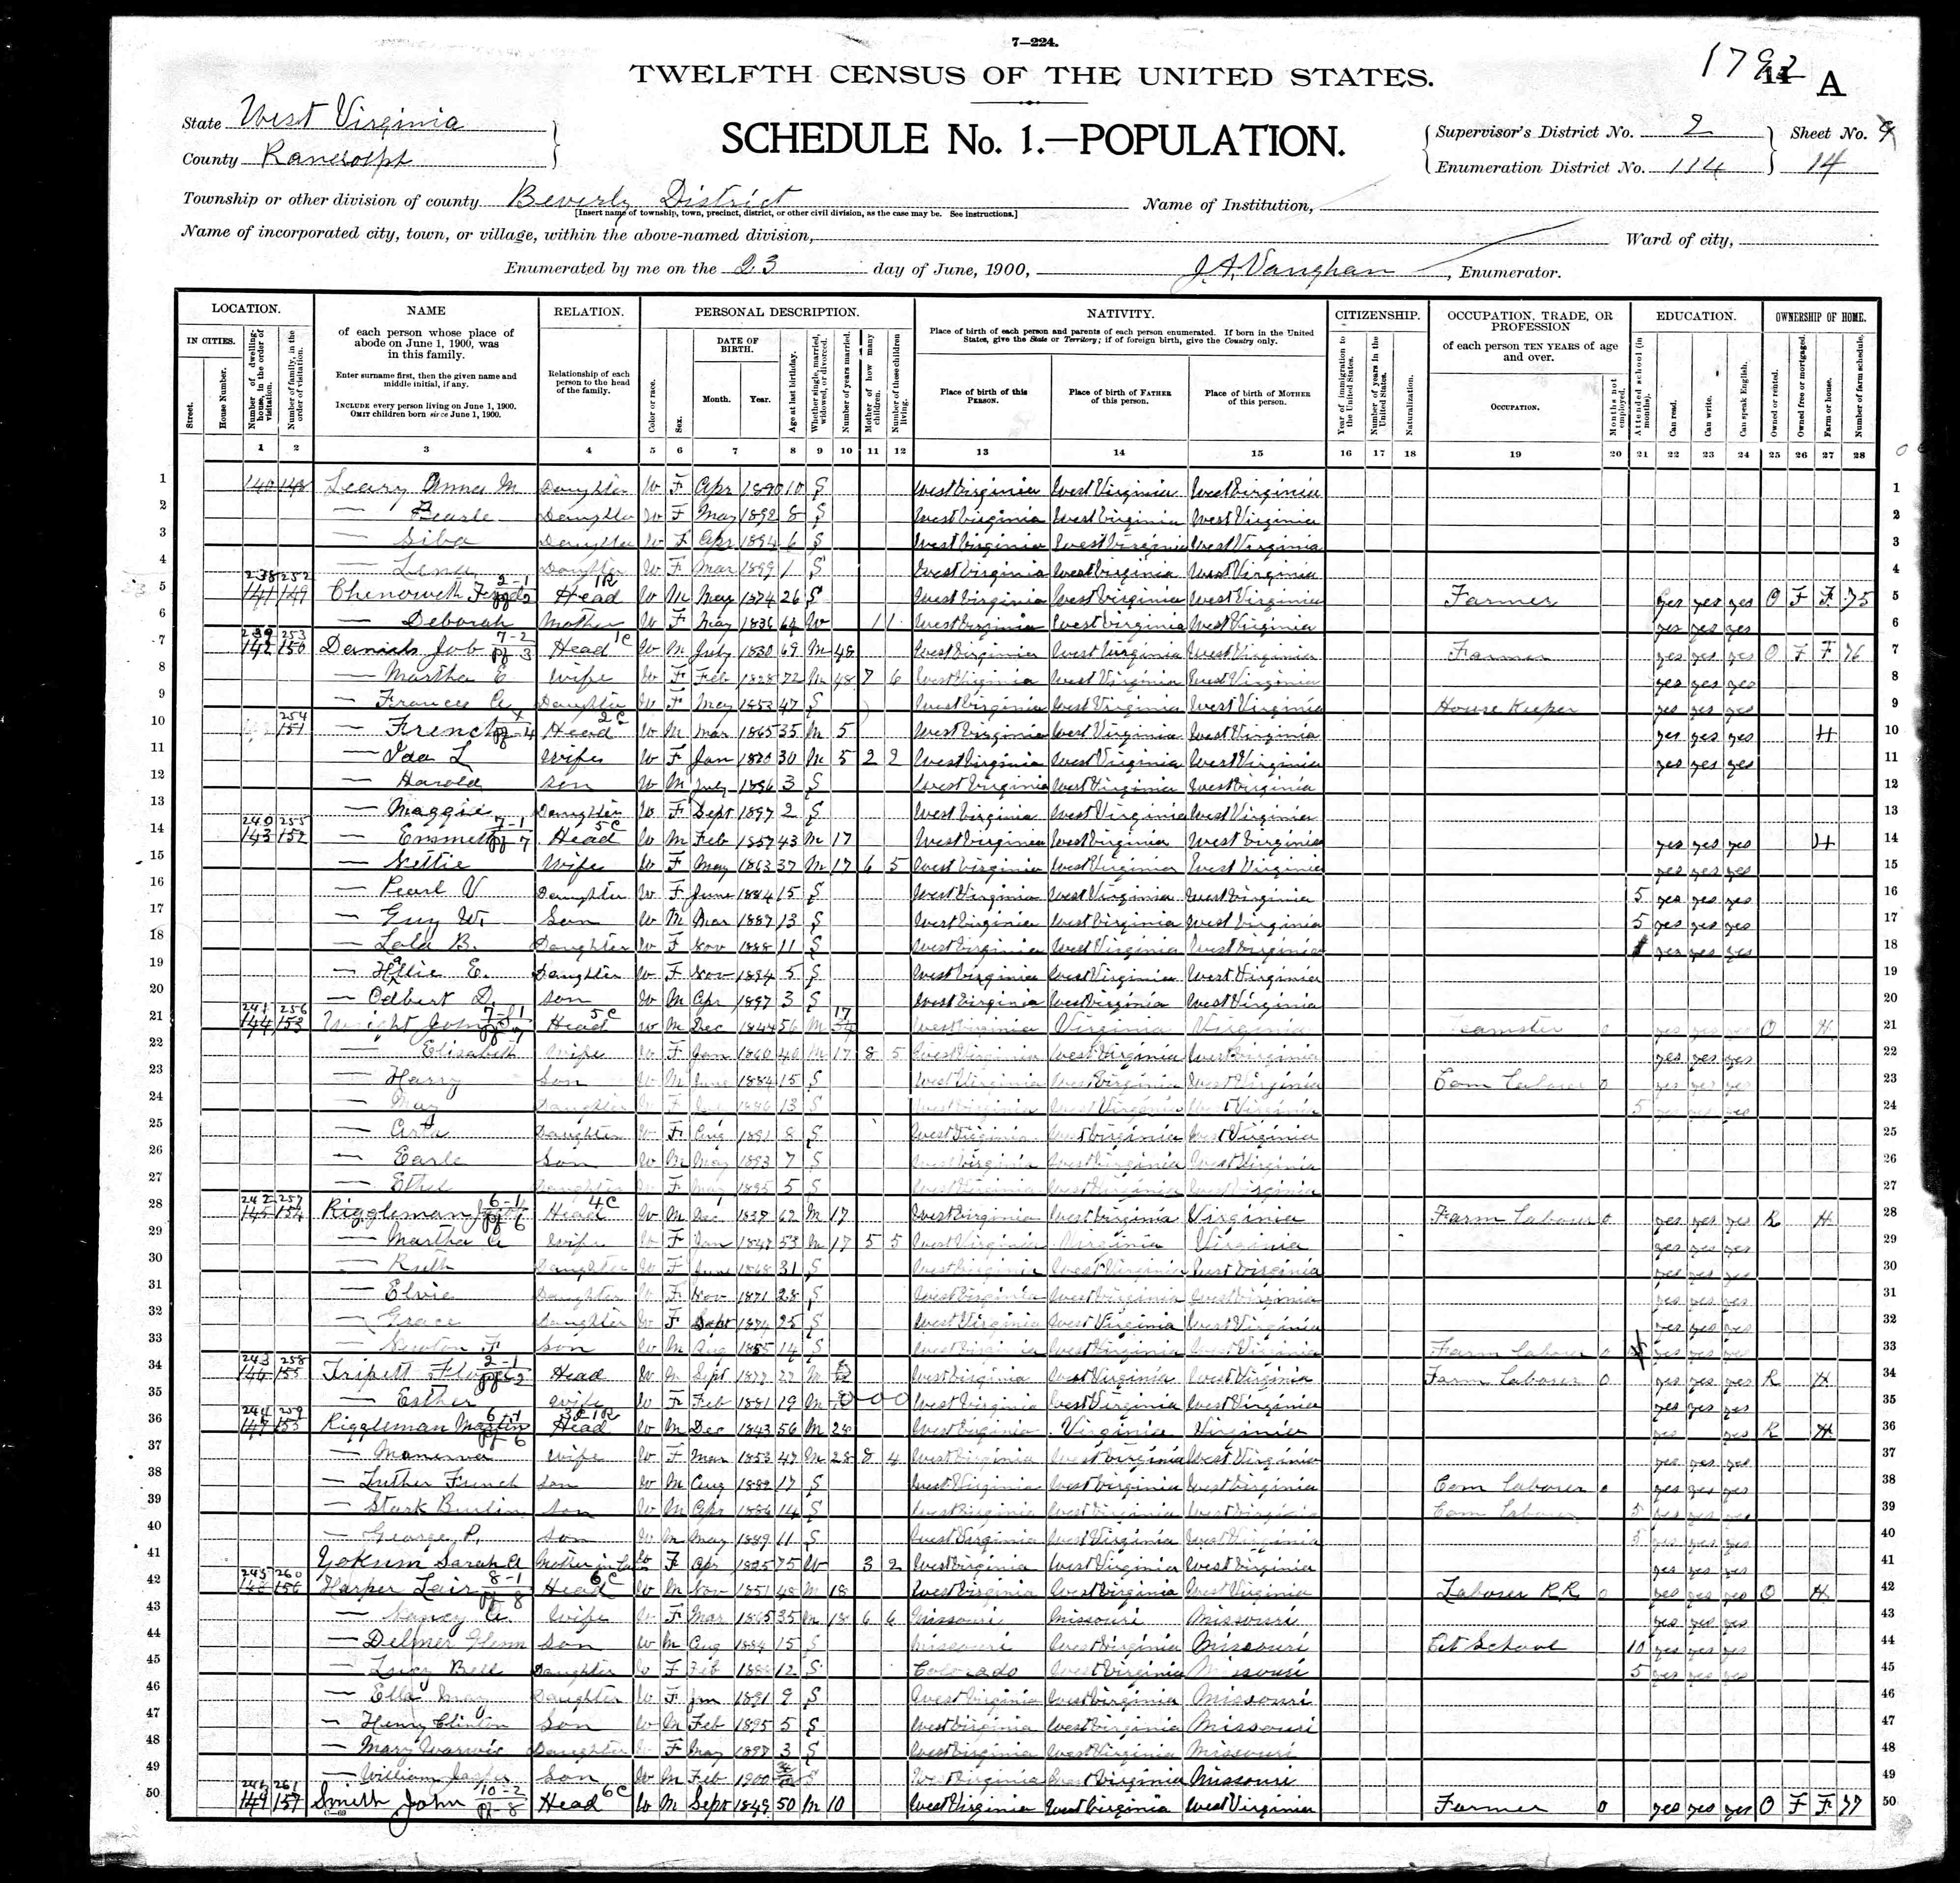 7—224.
1792 A
TWELFTH CENSUS OF THE UNITED STATES.
State West Virginia
County Randolph
SCHEDULE No. 1.—POPULATION.
Supervisor's District No. 2 Sheet No. 9
Enumeration District No. 114 14
Township or other division of county Beverly District Name of Institution,
[Insert name of township, town, precinct, district, or other civil division, as the case may be. See instructions.]
Name of incorporated city, town, or village, within the above-named division, Ward of city,
Enumerated by me on the 23 day of June, 1900, J. A. Vaughan, Enumerator.
LOCATION. NAME RELATION. PERSONAL DESCRIPTION. NATIVITY. CITIZENSHIP. OCCUPATION, TRADE, OR PROFESSION EDUCATION. OWNERSHIP OF HOME.
IN CITIES. Street. House Number.
Number of dwelling-house, in the order of visitation.
Number of family, in the order of visitation.
of each person whose place of abode on June 1, 1900, was in this family.
Enter surname first, then the given name and middle initial, if any.
INCLUDE every person living on June 1, 1900. OMIT children born since June 1, 1900.
Relationship of each person to the head of the family.
Color or race. Sex. DATE OF BIRTH. Month. Year. Age at last birthday. Whether single, married, widowed, or divorced. Number of years married. Mother of how many children. Number of these children living.
Place of birth of each person and parents of each person enumerated. If born in the United States, give the State or Territory; if of foreign birth, give the Country only.
Place of birth of this PERSON. Place of birth of FATHER of this person. Place of birth of MOTHER of this person.
Year of immigration to the United States. Number of years in the United States. Naturalization.
of each person TEN YEARS of age and over.
OCCUPATION. Months not employed.
Attended school (in months). Can read. Can write. Can speak English.
Owned or rented. Owned free or mortgaged. Farm or house. Number of farm schedule.
1 2 3 4 5 6 7 8 9 10 11 12 13 14 15 16 17 18 19 20 21 22 23 24 25 26 27 28
1 140 148 Leary Anna M Daughter W F Apr 1890 10 S West Virginia West Virginia West Virginia 1
2 — Pearle Daughter W F May 1892 8 S West Virginia West Virginia West Virginia 2
3 — Daughter W F Apr 1894 6 S West Virginia West Virginia West Virginia 3
4 — Lena Daughter W F Mar 1899 1 S West Virginia West Virginia West Virginia 4
5 238 252 141 149 Chenoweth 2-1 Head 1R W M May 1874 26 S West Virginia West Virginia West Virginia Farmer yes yes yes O F F 75 5
6 — Deborah Mother W F May 1836 64 W West Virginia West Virginia West Virginia yes yes yes 6
7 239 253 142 150 Daniels Job 7-2 Head 1C W M July 1830 69 M 48 West Virginia West Virginia West Virginia Farmer yes yes yes O F F 76 7
8 — Martha E wife W F Feb 1828 72 M 48 7 6 West Virginia West Virginia West Virginia yes yes yes 8
9 — Frances Daughter W F May 1853 47 S West Virginia West Virginia West Virginia House Keeper yes yes yes 9
10 254 151 — French Head 2C W M Mar 1865 35 M 5 West Virginia West Virginia West Virginia yes yes yes H 10
11 — Ida L Wife W F Jan 1870 30 M 5 2 2 West Virginia West Virginia West Virginia yes yes yes 11
12 — Harold son W M July 1896 3 S West Virginia West Virginia West Virginia 12
13 — Maggie Daughter W F Sept 1897 2 S West Virginia West Virginia West Virginia 13
14 240 255 143 152 — Emmett 7-1 Head 5C W M Feb 1857 43 M 17 West Virginia West Virginia West Virginia yes yes yes H 14
15 — Nettie Wife W F May 1863 37 M 17 6 5 West Virginia West Virginia West Virginia yes yes yes 15
16 — Pearl V Daughter W F June 1884 15 S West Virginia West Virginia West Virginia 5 yes yes yes 16
17 — Guy W. Son W M Mar 1887 13 S West Virginia West Virginia West Virginia 5 yes yes yes 17
18 — Lola B. Daughter W F Nov 1888 11 S West Virginia West Virginia West Virginia yes yes yes 18
19 — E. Daughter W F Nov 1894 5 S West Virginia West Virginia West Virginia 19
20 — Odbert D. son W M Apr 1897 3 S West Virginia West Virginia West Virginia 20
21 241 256 144 153 Wright John Head 5C W M Dec 1844 56 M 17 West Virginia Virginia Virginia Teamster 0 yes yes yes O H 21
22 — Elizabeth Wife W F Jan 1860 40 M 17 8 5 West Virginia West Virginia West Virginia yes yes yes 22
23 — Harry Son W M June 1884 15 S West Virginia West Virginia West Virginia Com Laborer 0 yes yes yes 23
24 — May Daughter W F 1886 13 S West Virginia West Virginia West Virginia 5 yes yes yes 24
25 — Arta Daughter W F Aug 1891 8 S West Virginia West Virginia West Virginia 25
26 — Earle Son W M May 1893 7 S West Virginia West Virginia West Virginia 26
27 — Ethel Daughter W F May 1895 5 S West Virginia West Virginia West Virginia 27
28 242 257 145 154 Riggleman 6-1 Head 4C W M Dec 62 M 17 West Virginia West Virginia Virginia Farm Laborer 0 yes yes yes R H 28
29 — Martha A wife W F Jan 1847 53 M 17 5 5 West Virginia Virginia Virginia yes yes yes 29
30 — Ruth Daughter W F June 1868 31 S West Virginia West Virginia West Virginia yes yes yes 30
31 — Elvie Daughter W F Nov 1871 28 S West Virginia West Virginia West Virginia yes yes yes 31
32 — Grace Daughter W F Sept 1874 25 S West Virginia West Virginia West Virginia yes yes yes 32
33 — Newton F son W M Aug 1885 14 S West Virginia West Virginia West Virginia Farm Laborer 0 yes yes yes 33
34 243 258 146 155 Tripett 2-1 Head W M Sept 1877 22 M West Virginia West Virginia West Virginia Farm Laborer 0 yes yes yes R H 34
35 — Esther wife W F Feb 1881 19 M 0 0 0 West Virginia West Virginia West Virginia yes yes yes 35
36 244 259 147 155 Riggleman Martin 6-1 Head 3C 1R W M Dec 1843 56 M 28 West Virginia Virginia Virginia yes yes R H 36
37 — Manerva wife W F Mar 1853 47 M 28 8 4 West Virginia West Virginia West Virginia yes yes 37
38 — Luther French son W M Aug 1882 17 S West Virginia West Virginia West Virginia Com Laborer 0 yes yes yes 38
39 — Stark Burlin son W M Apr 1886 14 S West Virginia West Virginia West Virginia Com Laborer 5 yes yes yes 39
40 — George P. son W M May 1889 11 S West Virginia West Virginia West Virginia 5 yes yes yes 40
41 Yokum Sarah A Mother in Law W F Apr 1825 75 W 3 2 West Virginia West Virginia West Virginia yes yes yes 41
42 245 260 148 156 Harper Lair 8-1 Head 6C W M Nov 1851 48 M 18 West Virginia West Virginia West Virginia Laborer RR 0 yes yes yes O H 42
43 — Nancy A wife W F Mar 1865 35 M 18 6 6 Missouri Missouri Missouri yes yes yes 43
44 — Delmer Glenn Son W M Aug 1884 15 S Missouri West Virginia Missouri At School 10 yes yes yes 44
45 — Lucy Bell Daughter W F Feb 1888 12 S Colorado West Virginia Missouri 5 yes yes yes 45
46 — Ella May Daughter W F Jan 1891 9 S West Virginia West Virginia Missouri 46
47 — Henry Clinton Son W M Feb 1895 5 S West Virginia West Virginia Missouri 47
48 — Mary Warwic Daughter W F May 1897 3 S West Virginia West Virginia Missouri 48
49 — William Jasper Son W M Feb 1900 S West Virginia West Virginia Missouri 49
50 246 261 149 157 Smith John 10-2 Head 6C W M Sept 1849 50 M 10 West Virginia West Virginia West Virginia Farmer 0 yes yes yes O F F 77 50